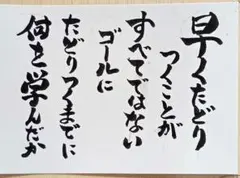 早くたどり
つくことが
すべてではない
ゴールに
たどりつくまでに
何を学んだか